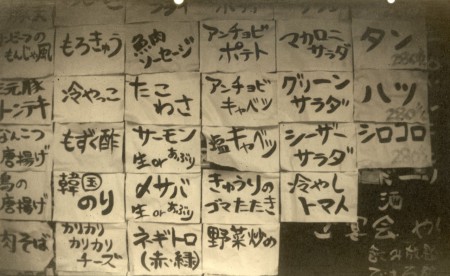 もんじゃ風
もろきゅう
魚肉
ソーセージ
アンチョビ
ポテト
マカロニ
サラダ
タン
元豚
トンテキ
冷やっこ
たこ
わさ
アンチョビ
キャベツ
グリーン
サラダ
ハツ
なんこつ
唐揚げ
もずく酢
サーモン
生orあぶり
塩キャベツ
シーザー
サラダ
シロコロ
鳥の
唐揚げ
韓国
のり
〆サバ
生orあぶり
きゅうりの
ゴマたたき
冷やし
トマト
酒
肉そば
カリカリ
カリカリ
チーズ
ネギトロ
(赤・緑)
野菜炒め
宴会
飲み放題